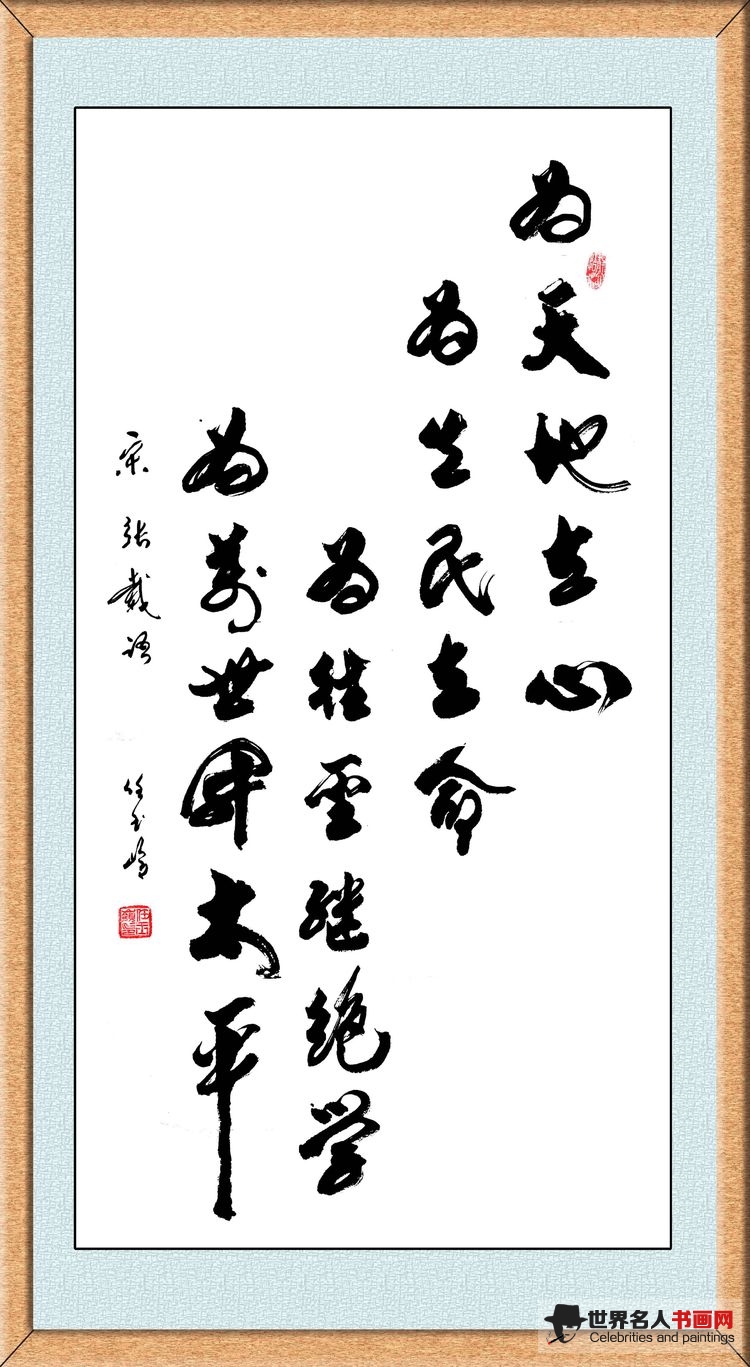 为天地立心
为生民立命
为往圣继绝学
为萬世開太平
宋 張載语
任玉岭
世界名人书画网
Celebrities and paintings